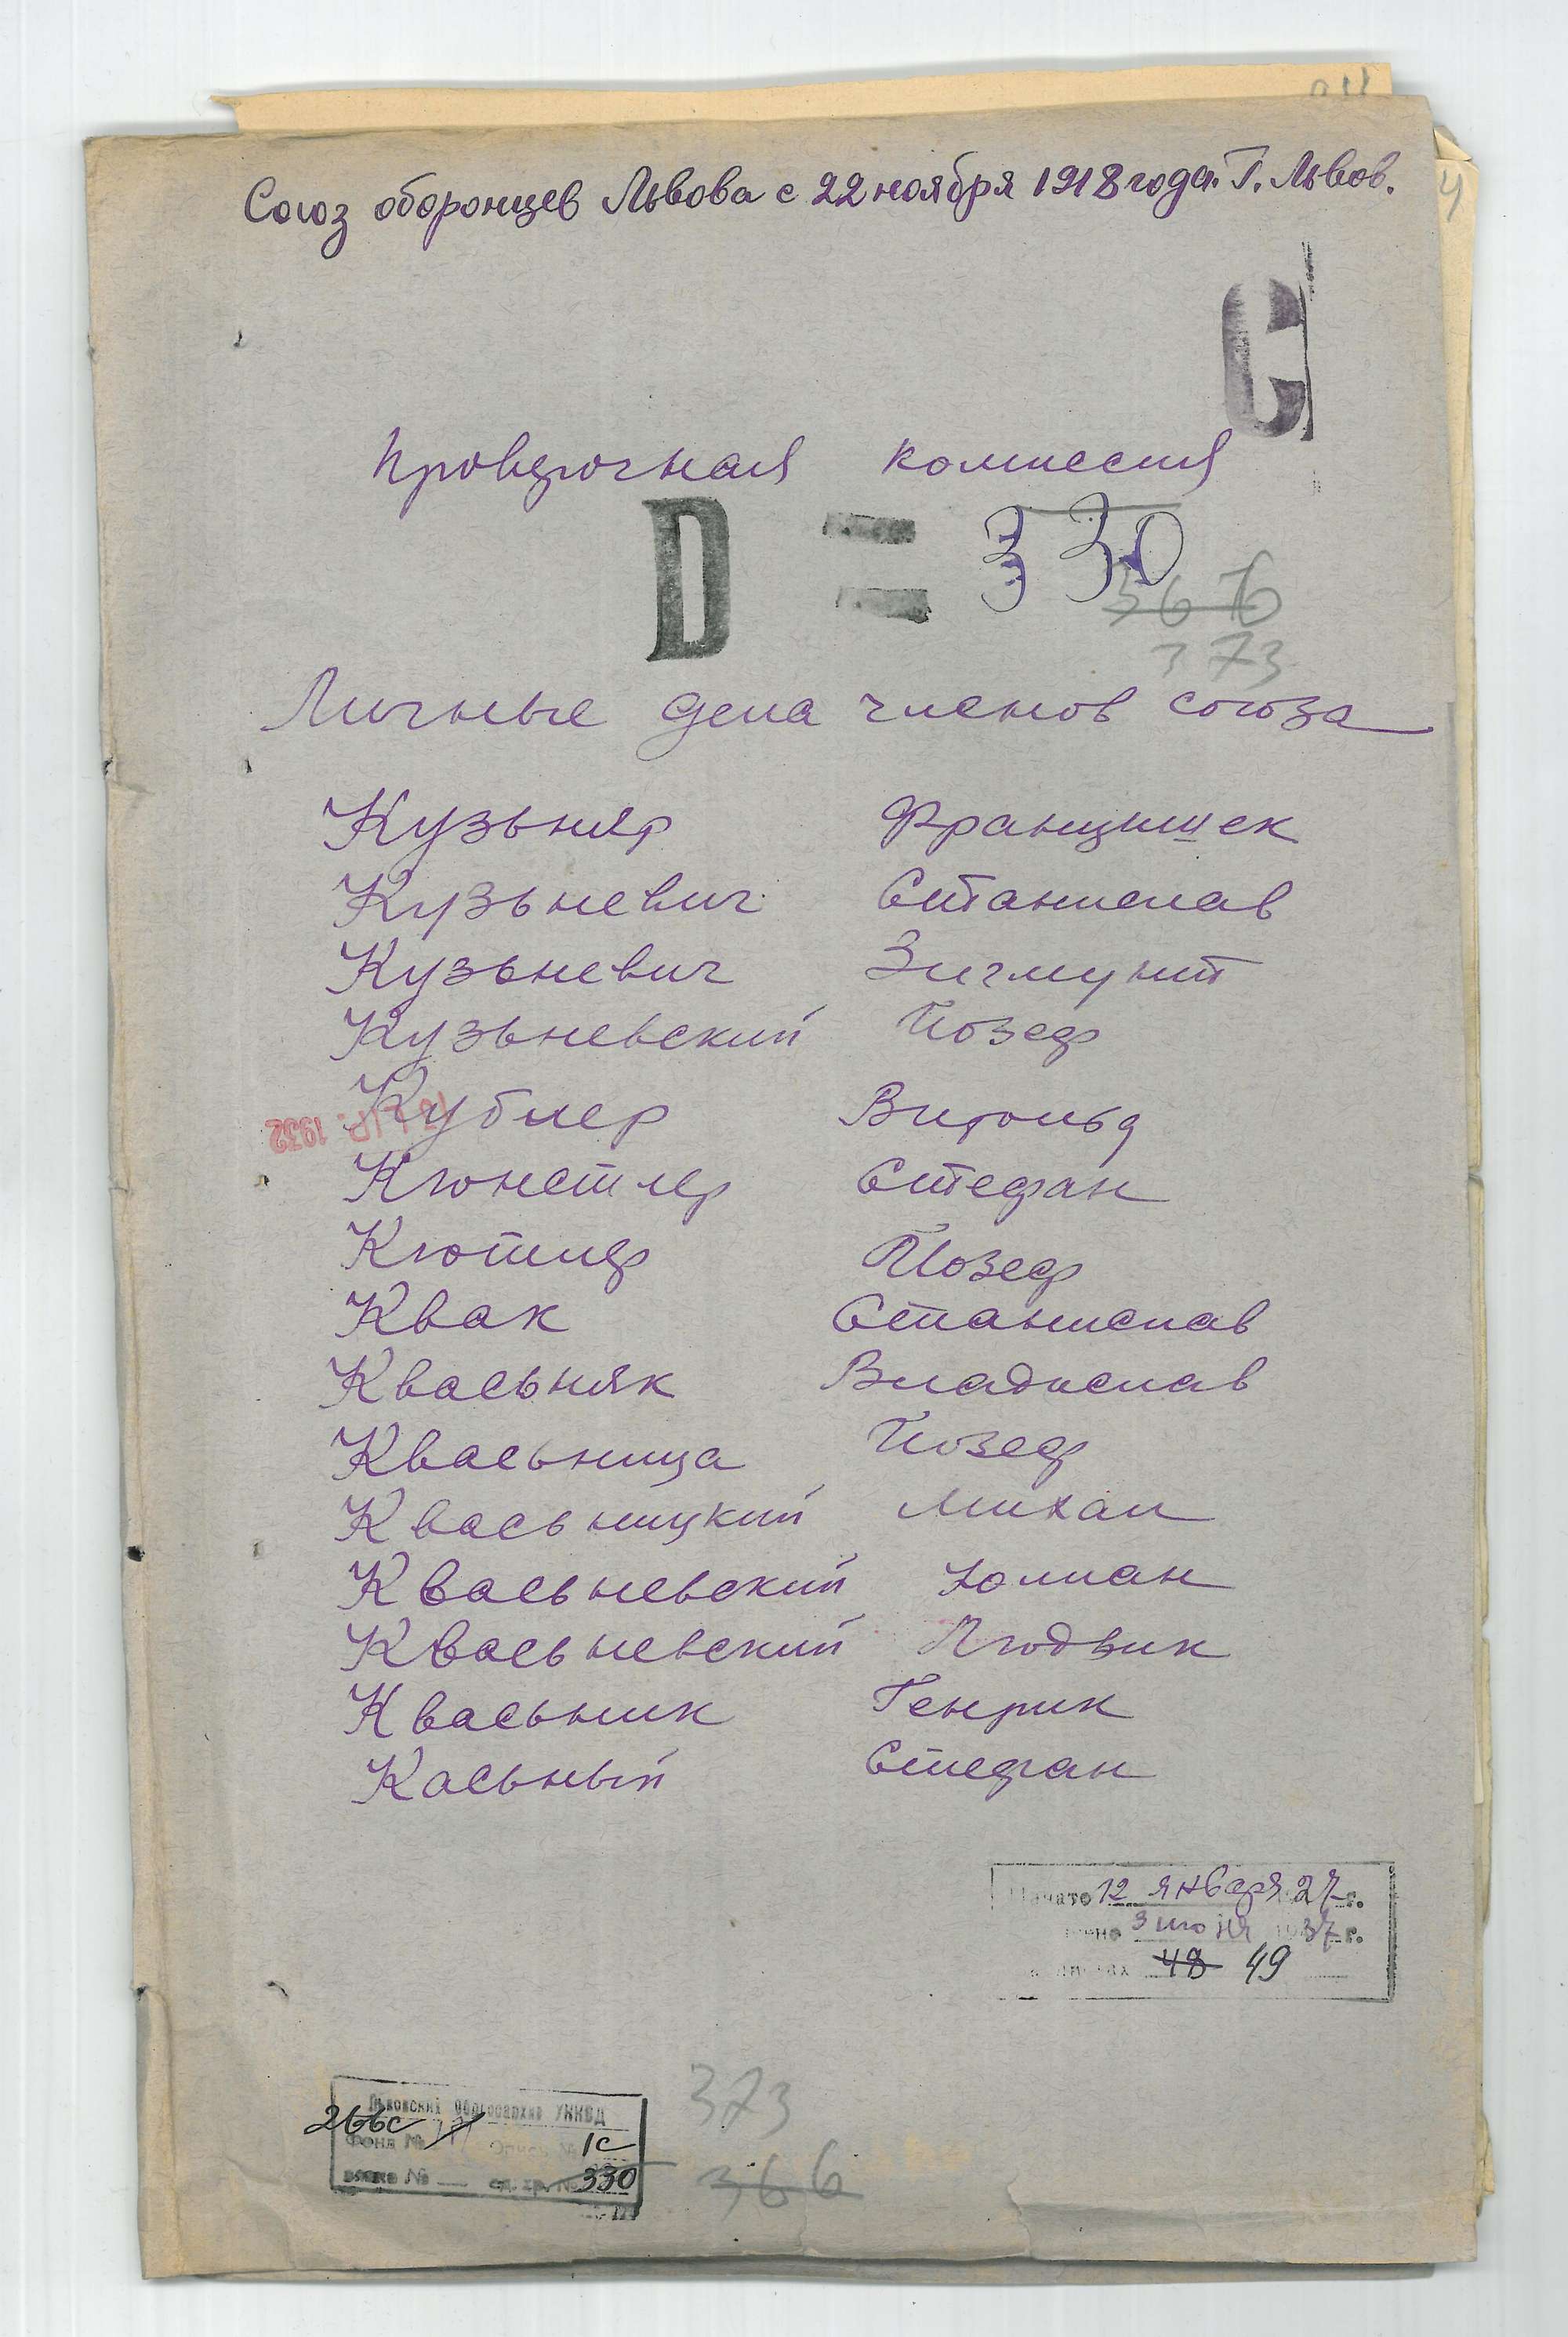 Союз оборонцев Львова с 22 ноября 1918 года. Г. Львов.
С
Проверочная комиссия
D = 330
366
373
Личные дела членов союза
Кузьняр Францишек
Кузьневич Станислав
Кузьневич Зигмунт
Кузьневский Йозеф
Кублер Витольд
1932
Кюнстлер Стефан
Йозеф
Квак Станислав
Квасьняк Владислав
Квасьница Йозеф
Квасьницкий Михал
Квасьневский Юлиан
Квасьневский Людвик
Квасьник Генрик
Касьный Стефан
Начато 12 января 27 г.
3 июня 1937 г.
листах 48 49
373
366
Львовский Облгосархив УНКВД
266с
Фонд № Опись № 1с
связка № ед. хр. № 330